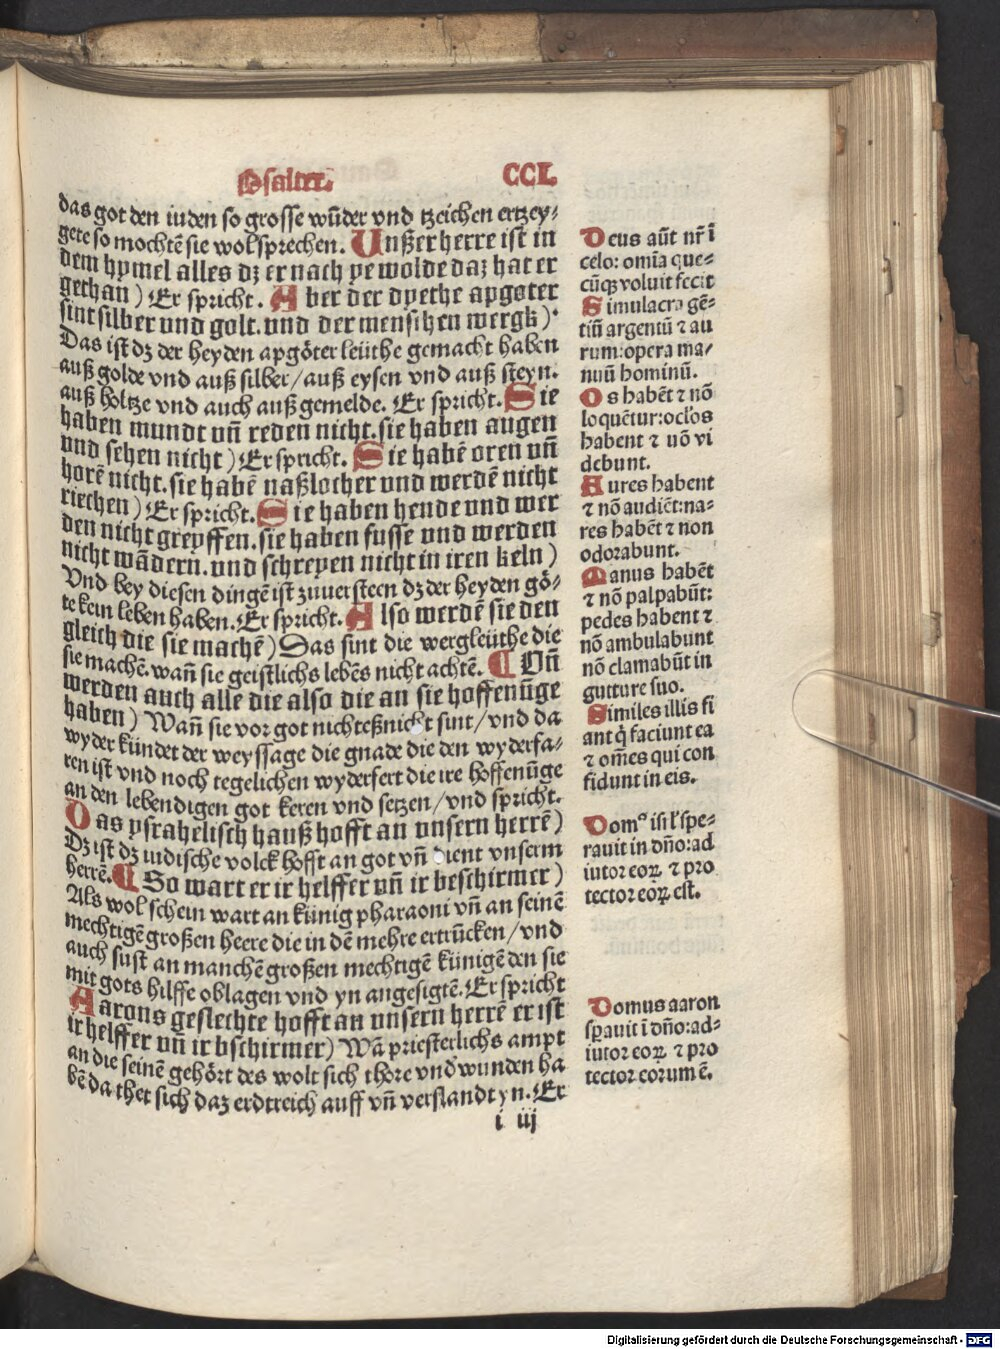 Psalter. CCL.
das got den iuden so grosse wũder vnd tzeichen ertzey⸗
gete so mochtẽ sie wol sprechen. Unßer herre ist in
dem hymel alles dz er nach ye wolde daz hat er
gethan) Er spricht. Aber der dyethe apgoter
sint silber vnd golt. vnd der menschen wergk)
Das ist dz der heyden apgöter leüthe gemacht haben
auß golde vnd auß silber/ auß eysen vnd auß steyn.
auß holtze vnd auch auß gemelde. Er spricht. Sie
haben mundt vñ reden nicht. sie haben augen
vnd sehen nicht) Er spricht. Sie habẽ oren vñ
horẽ nicht. sie habẽ naßlocher vnd werdẽ nicht
riechen) Er spricht. Sie haben hende vnd wer
den nicht greyffen. sie haben fusse vnd werden
nicht wãdern. vnd schreyen nicht in iren keln)
Vnd bey diesen dingẽ ist zuuersteen dz der heyden gö⸗
te kein leben haben. Er spricht. Also werdẽ sie den
gleich die sie machẽ) Das sint die wergleüthe die
sie machẽ. wañ sie geistlichs lebẽs nicht achtẽ. ¶ Vñ
werden auch alle die also die an sie hoffenũge
haben) Wañ sie vor got nichteßnicht sint/ vnd da
wyder kündet der weyssage die gnade die den wyderfa⸗
ren ist vnd noch tegelichen wyderfert die ire hoffenũge
an den lebendigen got keren vnd setzen/ vnd spricht.
Das ysrahelisch hauß hofft an vnsern herrẽ)
Dz ist dz iudische volck hofft an got vñ dient vnserm
herrẽ. ¶ So wart er ir helffer vñ ir beschirmer)
Als wol schein wart an künig pharaoni vñ an seinẽ
mechtigẽ großen heere die in dẽ mehre ertrũcken/ vnd
auch sust an manchẽ großen mechtigẽ künigẽ den sie
mit gots hilffe oblagen vnd yn angesigtẽ. Er spricht
Aarons geslechte hofft an vnsern herrẽ er ist
ir helffer vñ ir bschirmer) Wã priesterlichs ampt
an die seinẽ gehört des wolt sich thore vnd wunden ha
bẽ da thet sich daz erdtreich auff vñ verslandt yn. Er
i iij
Deus aũt nr̃ ĩ
celo: omĩa que⸗
cũqꝫ voluit fecit
Simulacra gẽ⸗
tiũ argentũ ⁊ au
rum: opera ma⸗
nuũ hominũ.
Os habẽt ⁊ nõ
loquẽtur: ocl'os
habent ⁊ nõ vi
debunt.
Aures habent
⁊ nõ audiẽt: na⸗
res habẽt ⁊ non
odorabunt.
Manus habẽt
⁊ nõ palpabũt:
pedes habent ⁊
nõ ambulabunt
nõ clamabũt in
gutture suo.
Similes illis fi
ant q̇ faciunt ea
⁊ oẽs qui con
fidunt in eis.
Domꝰ isrl' spe⸗
rauit in dño: ad
iutor eoꝝ ⁊ pro
tector eoꝝ est.
Domus aaron
sꝑauit ĩ dño: ad⸗
iutor eoꝝ ⁊ pro
tector eorum ẽ.
Digitalisierung gefördert durch die Deutsche Forschungsgemeinschaft - DFG